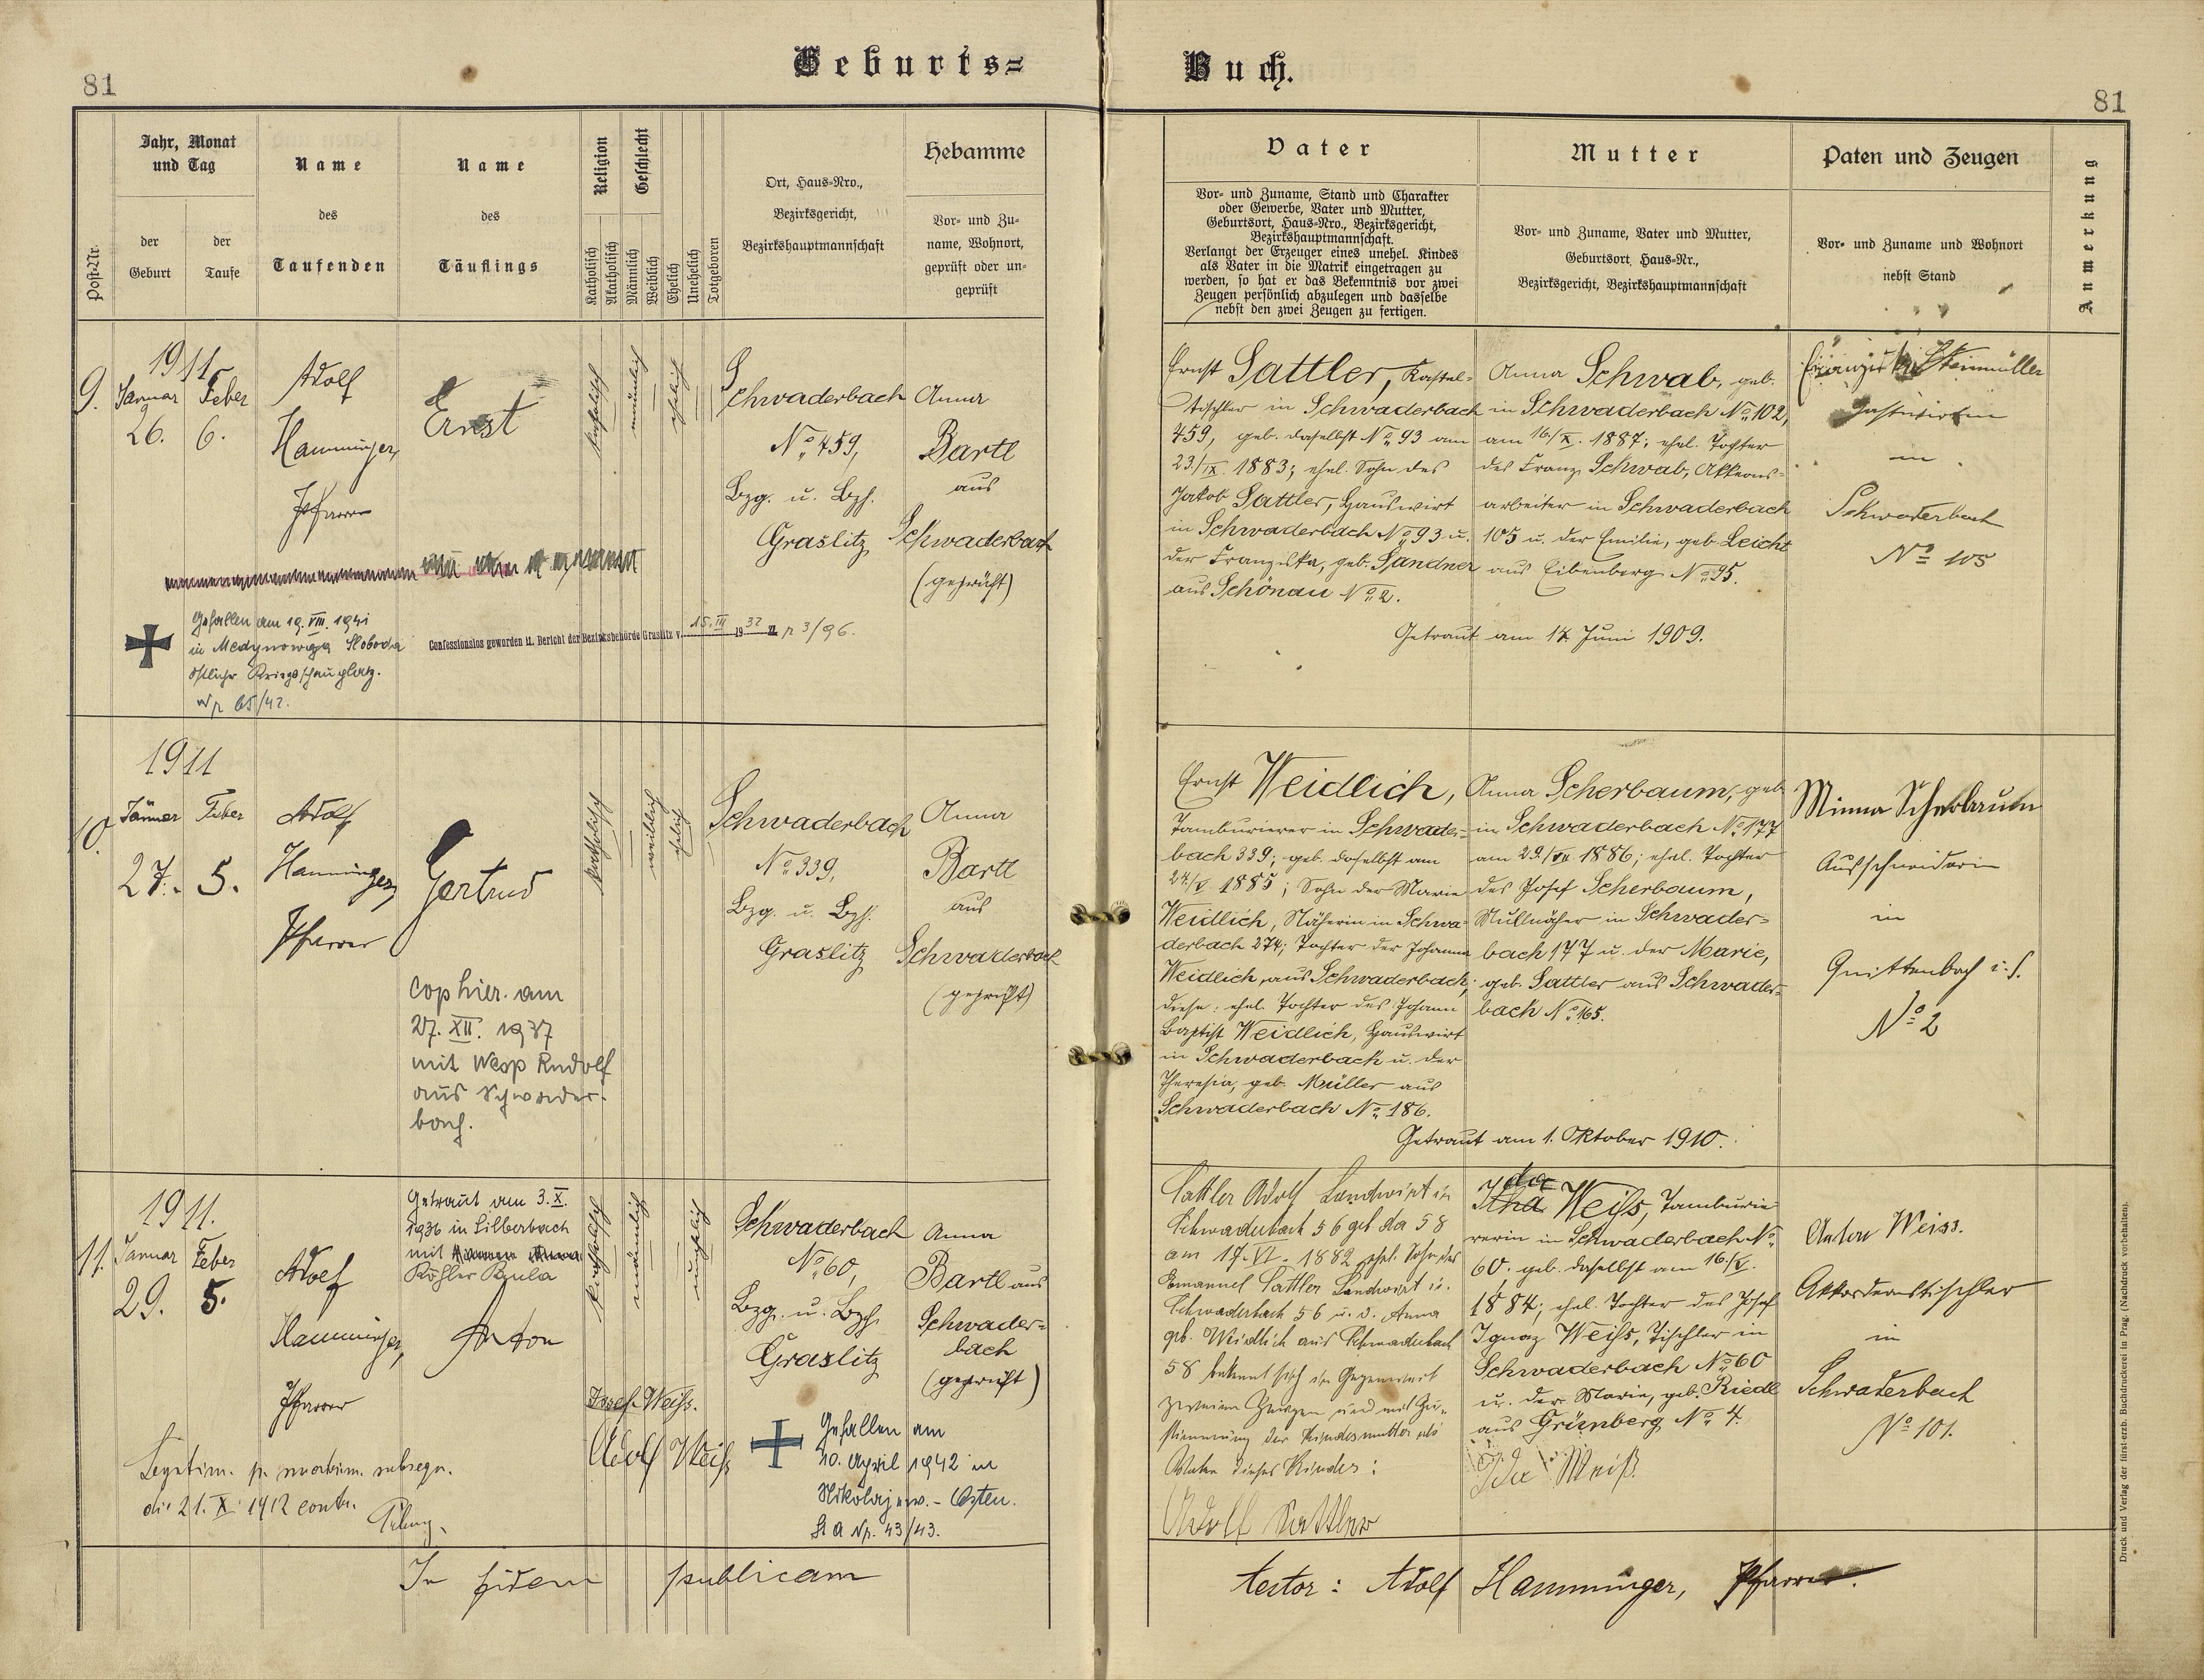 Geburts=
Buch.
81
81
Post-Nr.
Jahr, Monat
und Tag
der
Geburt
der
Taufe
Name
des
Taufenden
Name
des
Täuflings
Religion
Katholisch
Akatholisch
Geschlecht
Männlich
Weiblich
Ehelich
Unehelich
Totgeboren
Ort, Haus=Nro.,
Bezirksgericht,
Bezirkshauptmannschaft
Hebamme
Vor= und Zu=
name, Wohnort,
geprüft oder un=
geprüft
Vater
Vor= und Zuname, Stand und Charakter
oder Gewerbe, Vater und Mutter,
Geburtsort, Haus=Nro., Bezirksgericht,
Bezirkshauptmannschaft.
Verlangt der Erzeuger eines unehel. Kindes
als Vater in die Matrik eingetragen zu
werden, so hat er das Bekenntnis vor zwei
Zeugen persönlich abzulegen und dasselbe
nebst den zwei Zeugen zu fertigen.
Mutter
Vor= und Zuname, Vater und Mutter,
Geburtsort, Haus=Nr.,
Bezirksgericht, Bezirkshauptmannschaft
Paten und Zeugen
Vor= und Zuname und Wohnort
nebst Stand
Anmerkung
9.
1911
Januar
26.
Feber
6.
Adolf
Hamminger,
Pfarrer
Ernst
katholisch
männlich
ehelich
Schwaderbach
No 459,
Bzg. u. Bzh.
Graslitz
Anna
Bartl
aus
Schwaderbach
(geprüft)
Gefallen am 19. VIII. 1941
in Medynowaja Sloboda
östlicher Kriegsschauplatz.
65/42.
Confessionslos geworden lt. Bericht der Bezirksbehörde Graslitz v. 15. III 1932 Z. 3/96.
Ernst Sattler, Kastel=
tischler in Schwaderbach
459, geb. daselbst No 93 am
23./IX. 1883; ehel. Sohn des
Jakob Sattler, Hauswirt
in Schwaderbach No 93 u.
der Franziska, geb. Sandner
aus Schönau No 2.
Anna Schwab, geb.
in Schwaderbach No 102,
am 16./X. 1887; ehel. Tochter
des Franz Schwab, Akkord=
arbeiter in Schwaderbach
105 u. der Emilie, geb. Leicht
aus Eibenberg No 95.
Getraut am 14. Juni 1909.
Steinmüller
Gastwirtin
in
Schwaderbach
No 105
10.
1911
Jänner
27.
Feber
5.
Adolf
Hamminger,
Pfarrer
Gertrud
cop hier. am
27. XII. 1937
mit Wesp Rudolf
aus Schwader-
bach.
katholisch
weiblich
ehelich
Schwaderbach
No 339,
Bzg. u. Bzh.
Graslitz
Anna
Bartl
aus
Schwaderbach
(geprüft)
Ernst Weidlich,
Tamburierer in Schwader=
bach 339; geb. daselbst am
24./V. 1885; Sohn der Marie
Weidlich, Näherin in Schwa=
derbach 274; Tochter der Johanna
Weidlich, aus Schwaderbach;
diese: ehel. Tochter des Johann
Baptist Weidlich, Hauswirt
in Schwaderbach u. der
Theresia, geb. Müller aus
Schwaderbach No 186.
Anna Scherbaum, geb.
in Schwaderbach No 177
am 29./VII 1886; ehel. Tochter
des Josef Scherbaum,
Müllnäher in Schwader=
bach 177 u. der Marie,
geb. Sattler aus Schwader=
bach No 165.
Getraut am 1. Oktober 1910.
Minna Scherbaum
Ausschneiderin
in
Quittenbach i. S.
No 2
11.
1911.
Januar
29.
Feber
5.
Adolf
Hamminger,
Pfarrer
Getraut am 3. X.
1936 in Silberbach
mit
Köhler Paula
Anton
katholisch
männlich
unehelich
Schwaderbach
No 60,
Bzg. u. Bzh.
Graslitz
Anna
Bartl aus
Schwader=
bach
(geprüft)
Josef Weiss.
Adolf Weiß
Legitim. p. matrim. subsequ.
die 21. X 1912 contr.
Gefallen am
10. April 1942 in
Nikolajew. - Osten.
43/43.
Sattler Adolf Landwirt in
Schwaderbach 56 geb. da 58
am 17. VI. 1882 ehel. Sohn des
Emanuel Sattler Landwirt in
Schwaderbach 56 u. d. Anna
geb. Weidlich aus Schwaderbach
58 bekennt sich in Gegenwart
zweier Zeugen und mit Zu=
stimmung der Kindesmutter als
Vater dieses Kindes:
Adolf Sattler
Ida
Weiss, Tamburie=
rerin in Schwaderbach No
60. geb. daselbst am 16./V.
1884; ehel. Tochter des Josef
Ignaz Weiss, Tischler in
Schwaderbach No 60
u. der Marie, geb. Riedl
aus Grünberg No 4.
Ida Weiß
Anton Weiss.
Akkordeontischler
in
Schwaderbach
No 101.
In fidem publicam
testor: Adolf Hamminger, Pfarrer.
Druck und Verlag der fürst-erzb. Buchdruckerei in Prag. (Nachdruck vorbehalten).